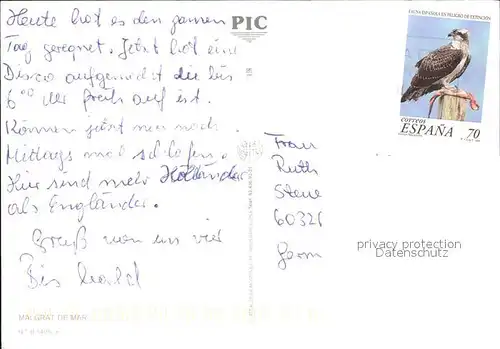 Heute hat es den ganzen
Tag geregnet. Jetzt hat eine
Disco aufgemacht die bis
6⁰⁰ Uhr früh auf ist.
Können jetzt nur noch
Mittags mal schlafen.
Hier sind mehr Holländer
als Engländer.
Gruß von uns vier
Bis bald
PIC
FAUNA ESPAÑOLA EN PELIGRO DE EXTINCIÓN
correos
ESPAÑA 70
Frau
Ruth
6032
Germ
privacy protection
Datenschutz
MALGRAT DE MAR